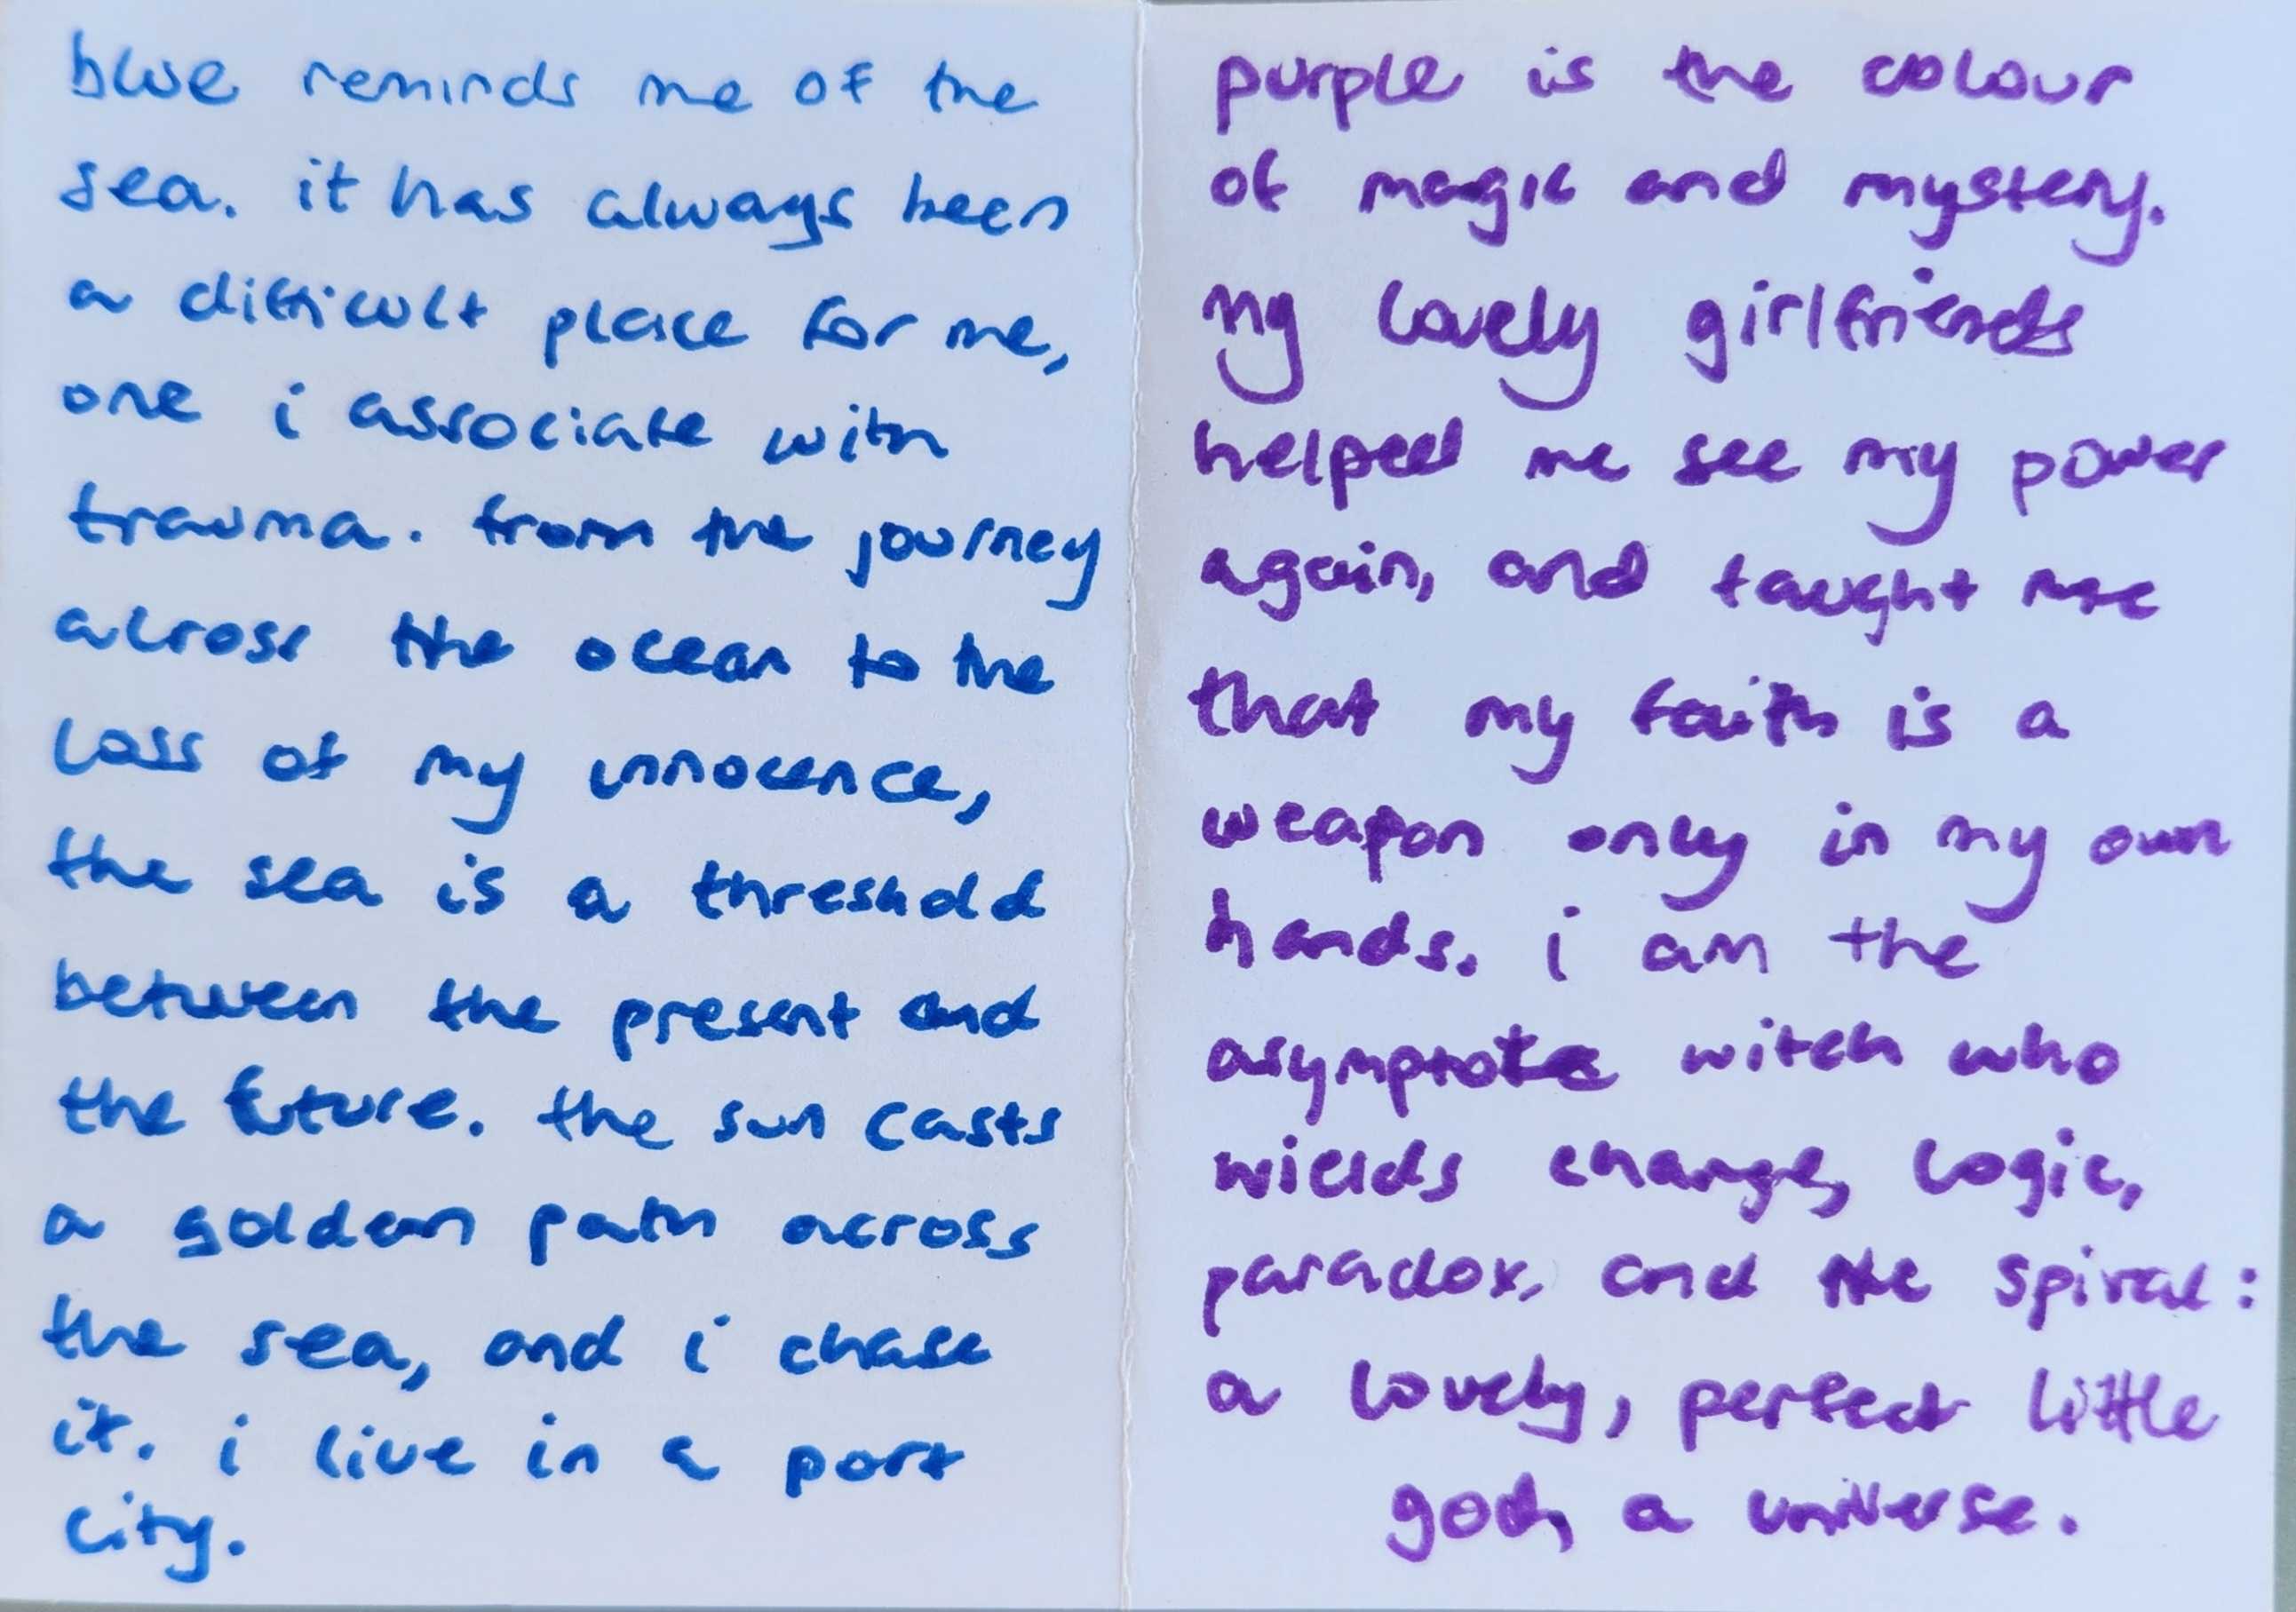 blue reminds me of the
sea. it has always been
a difficult place for me,
one i associate with
trauma. from the journey
across the ocean to the
loss of my innocence,
the sea is a threshold
between the present and
the future. the sun casts
a golden path across
the sea, and i chase
it. i live in a port
city.
purple is the colour
of magic and mystery.
my lovely girlfriends
helped me see my power
again, and taught me
that my faith is a
weapon only in my own
hands. i am the
asymptote witch who
wields change, logic,
paradox, and the spiral:
a lovely, perfect little
god, a universe.